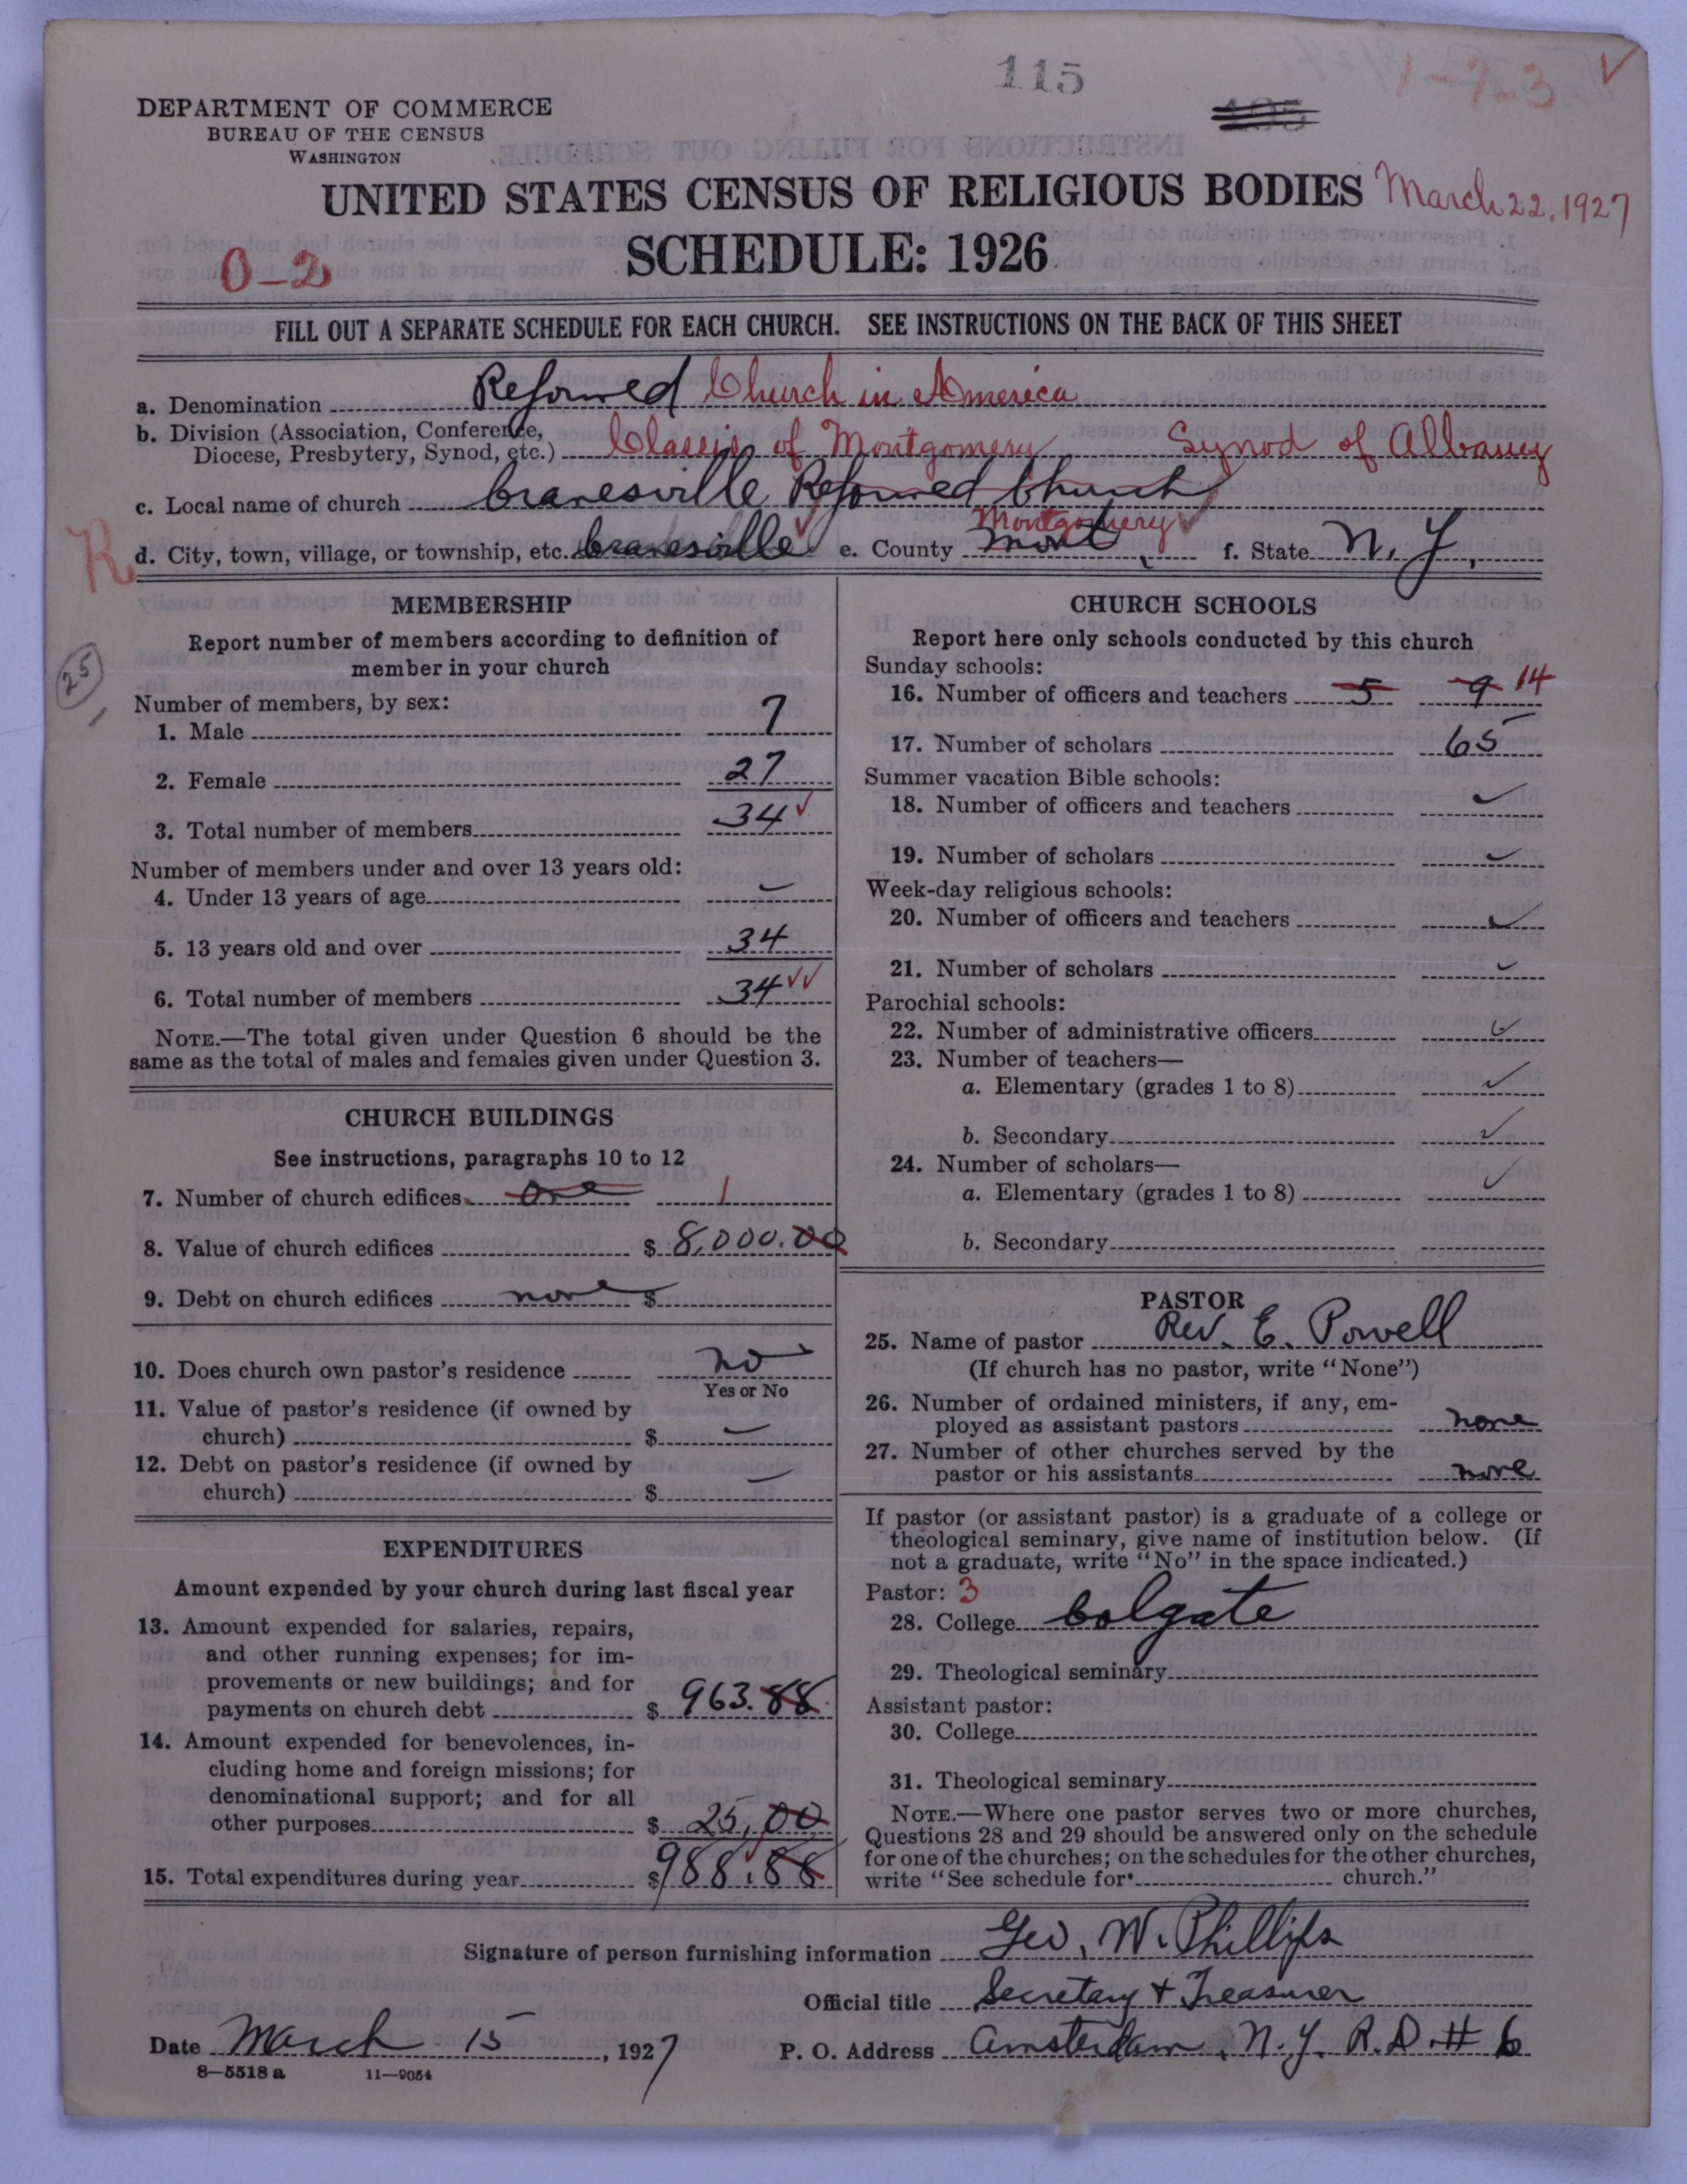 115
195
1-7-3 ✓
DEPARTMENT OF COMMERCE
BUREAU OF THE CENSUS
WASHINGTON
UNITED STATES CENSUS OF RELIGIOUS BODIES March 22, 1927
SCHEDULE: 1926
0-2
FILL OUT A SEPARATE SCHEDULE FOR EACH CHURCH. SEE INSTRUCTIONS ON THE BACK OF THIS SHEET
a. Denomination Reformed Church in America
b. Division (Association, Conference,
Diocese, Presbytery, Synod, etc.) Classis of Montgomery Synod of Albany
c. Local name of church Cranesville Reformed Church
Montgomery ✓
R d. City, town, village, or township, etc. Cranesville ✓ e. County Mont. f. State N. Y.
MEMBERSHIP
Report number of members according to definition of
member in your church
25
Number of members, by sex:
1. Male 7
2. Female 27
3. Total number of members 34 ✓
Number of members under and over 13 years old:
4. Under 13 years of age
5. 13 years old and over 34
6. Total number of members 34 ✓✓
NOTE.—The total given under Question 6 should be the
same as the total of males and females given under Question 3.
CHURCH BUILDINGS
See instructions, paragraphs 10 to 12
7. Number of church edifices one 1
8. Value of church edifices $ 8,000.00
9. Debt on church edifices none $
10. Does church own pastor's residence no
Yes or No
11. Value of pastor's residence (if owned by
church) $
12. Debt on pastor's residence (if owned by
church) $
EXPENDITURES
Amount expended by your church during last fiscal year
13. Amount expended for salaries, repairs,
and other running expenses; for im-
provements or new buildings; and for
payments on church debt $ 963.88
14. Amount expended for benevolences, in-
cluding home and foreign missions; for
denominational support; and for all
other purposes $ 25,00
15. Total expenditures during year $ 988.88
CHURCH SCHOOLS
Report here only schools conducted by this church
Sunday schools:
16. Number of officers and teachers 5 9 14
17. Number of scholars 65
Summer vacation Bible schools:
18. Number of officers and teachers ✓
19. Number of scholars ✓
Week-day religious schools:
20. Number of officers and teachers ✓
21. Number of scholars ✓
Parochial schools:
22. Number of administrative officers ✓
23. Number of teachers—
a. Elementary (grades 1 to 8) ✓
b. Secondary ✓
24. Number of scholars—
a. Elementary (grades 1 to 8) ✓
b. Secondary
PASTOR
25. Name of pastor Rev. E. Powell
(If church has no pastor, write "None")
26. Number of ordained ministers, if any, em-
ployed as assistant pastors none
27. Number of other churches served by the
pastor or his assistants none
If pastor (or assistant pastor) is a graduate of a college or
theological seminary, give name of institution below. (If
not a graduate, write "No" in the space indicated.)
Pastor: 3
28. College Colgate
29. Theological seminary
Assistant pastor:
30. College
31. Theological seminary
NOTE.—Where one pastor serves two or more churches,
Questions 28 and 29 should be answered only on the schedule
for one of the churches; on the schedules for the other churches,
write "See schedule for church."
Signature of person furnishing information Geo. W. Phillips
Official title Secretary + Treasurer
Date March 15, 1927 P. O. Address Amsterdam, N.Y. R.D. # 6
8-5518 a 11-9054